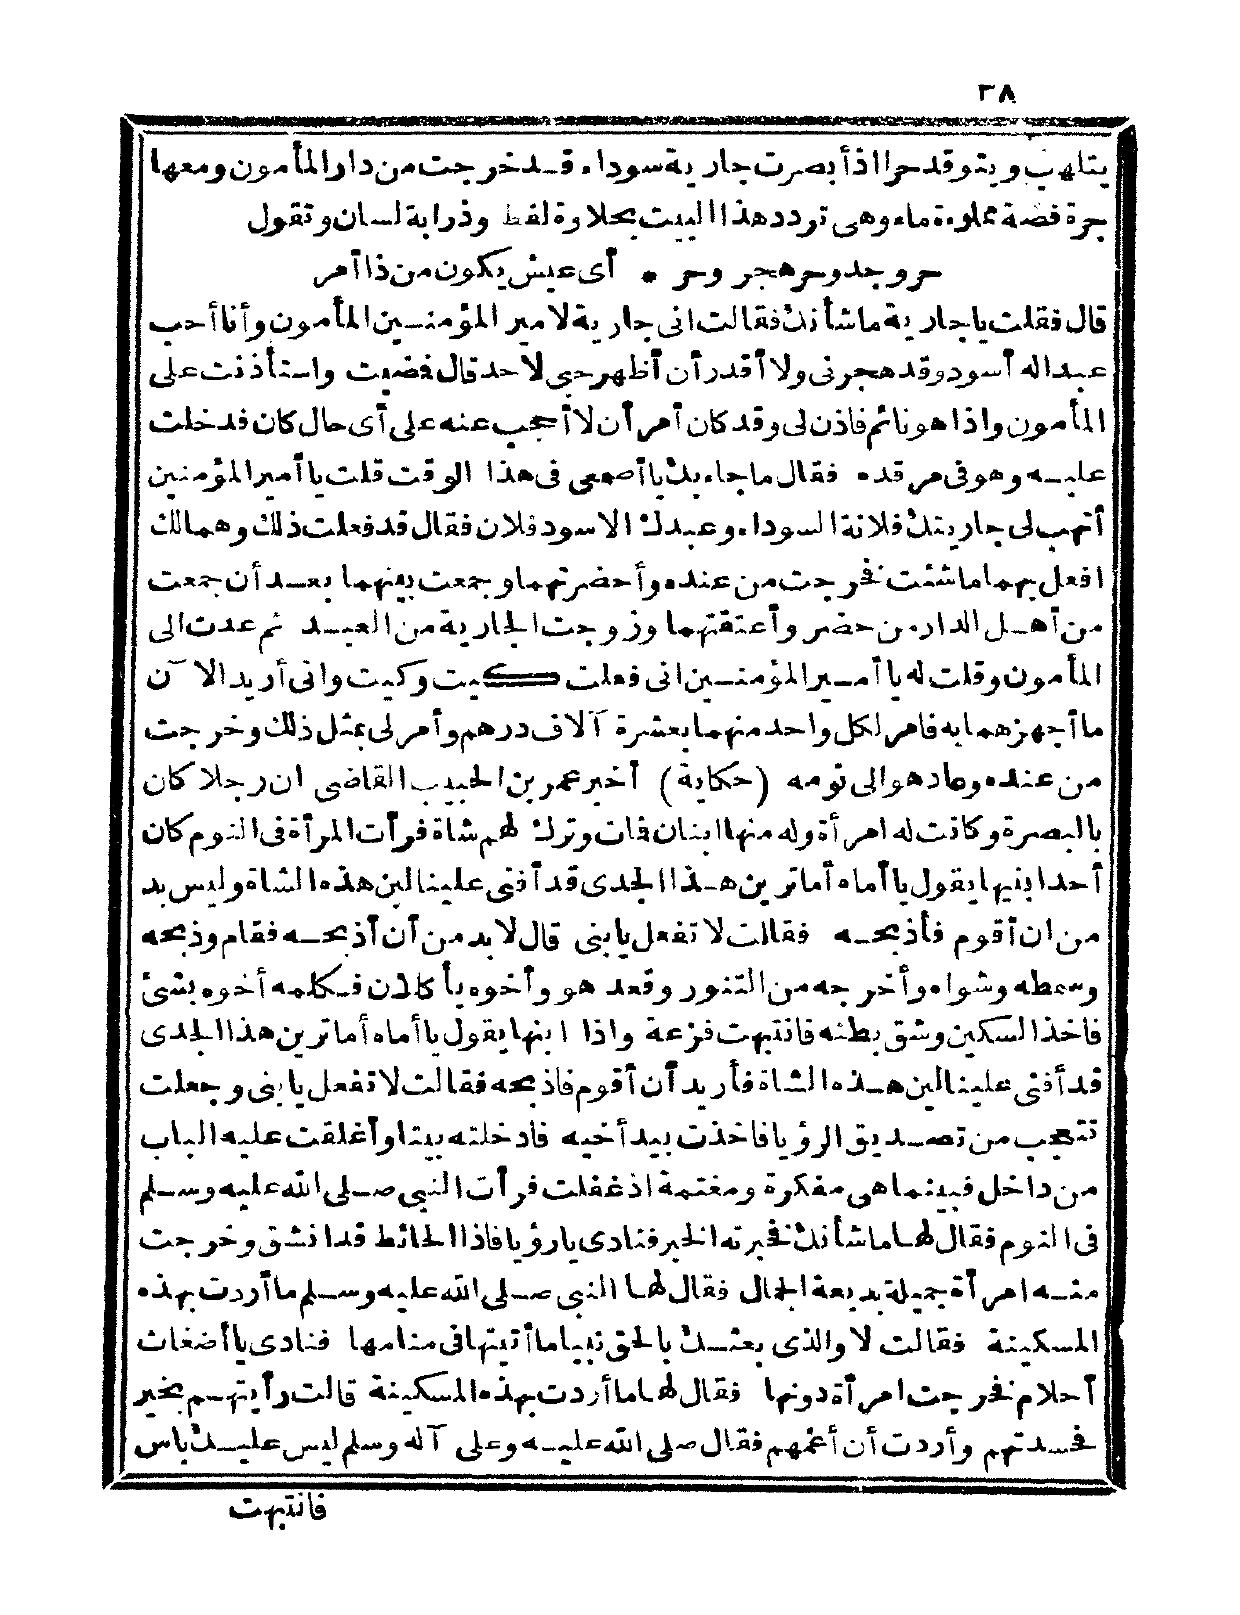 ٣٨
يتلهب ويتوقد حرا اذ أبصرت جارية سوداء قد خرجت من دار المأمون ومعها
جرة فضة مملوءة ماء وهى تردد هذا البيت بحلاوة لفظ وذرابة لسان وتقول
حر وجد وحر هجر وحر • أى عيش يكون من ذا أمر
قال فقلت يا جارية ما شأنك فقالت انى جارية لامير المؤمنين المأمون وأنا أحب
عبدا له أسود وقد هجرنى ولا أقدر أن أظهر حبى لاحد قال فمضيت واستأذنت على
المأمون واذا هو نائم فاذن لى وقد كان أمر أن لا أحجب عنه على أى حال كان فدخلت
عليه وهو فى مرقده فقال ما جاء بك يا أصمعى فى هذا الوقت قلت يا أمير المؤمنين
أتهب لى جاريتك فلانة السوداء وعبدك الاسود فلان فقال قد فعلت ذلك وهما لك
افعل بهما ما شئت فخرجت من عنده وأحضرتهما وجمعت بينهما بعد أن جمعت
من أهل الدار من حضر وأعتقتهما وزوجت الجارية من العبد ثم عدت الى
المأمون وقلت له يا أمير المؤمنين انى فعلت كيت وكيت وانى أريد الآن
ما أجهزهما به فامر لكل واحد منهما بعشرة آلاف درهم وأمر لى بمثل ذلك وخرجت
من عنده وعاد هو الى نومه (حكاية) أخبر عمر بن الحبيب القاضى ان رجلا كان
بالبصرة وكانت له امرأة وله منها ابنان فات وترك لهم شاة فرأت المرأة فى النوم كان
أحد ابنيها يقول يا أماه أما ترين هذا الجدى قد أفنى علينا لبن هذه الشاة وليس بد
من ان أقوم فأذبحه فقالت لا تفعل يا بنى قال لا بد من أن أذبحه فقام وذبحه
وسمطه وشواه وأخرجه من التنور وقعد هو وأخوه يأكلان فكلمه أخوه بشئ
فاخذ السكين وشق بطنه فانتبهت فزعة واذا ابنها يقول يا أماه أما ترين هذا الجدى
قد أفنى علينا لبن هذه الشاة فأريد أن أقوم فاذبحه فقالت لا تفعل يا بنى وجعلت
تتعجب من تصديق الرؤيا فاخذت بيد أخيه فادخلته بيتا وأغلقت عليه الباب
من داخل فبينما هى مفكرة ومغتمة اذ غفلت فرأت النبى صلى الله عليه وسلم
فى النوم فقال لها ما شأنك فخبرته الخبر فنادى يا رؤيا فاذا الحائط قد انشق وخرجت
منه امرأة جميلة بديعة الجمال فقال لها النبى صلى الله عليه وسلم ما أردت بهذه
المسكينة فقالت لا والذى بعثك بالحق نبيا ما أتيتها فى منامها فنادى يا أضغاث
أحلام فخرجت امرأة دونها فقال لها ما أردت بهذه المسكينة قالت رأيتهم بخير
فحسدتهم وأردت أن أغمهم فقال صلى الله عليه وعلى آله وسلم ليس عليك باس
فانتبهت